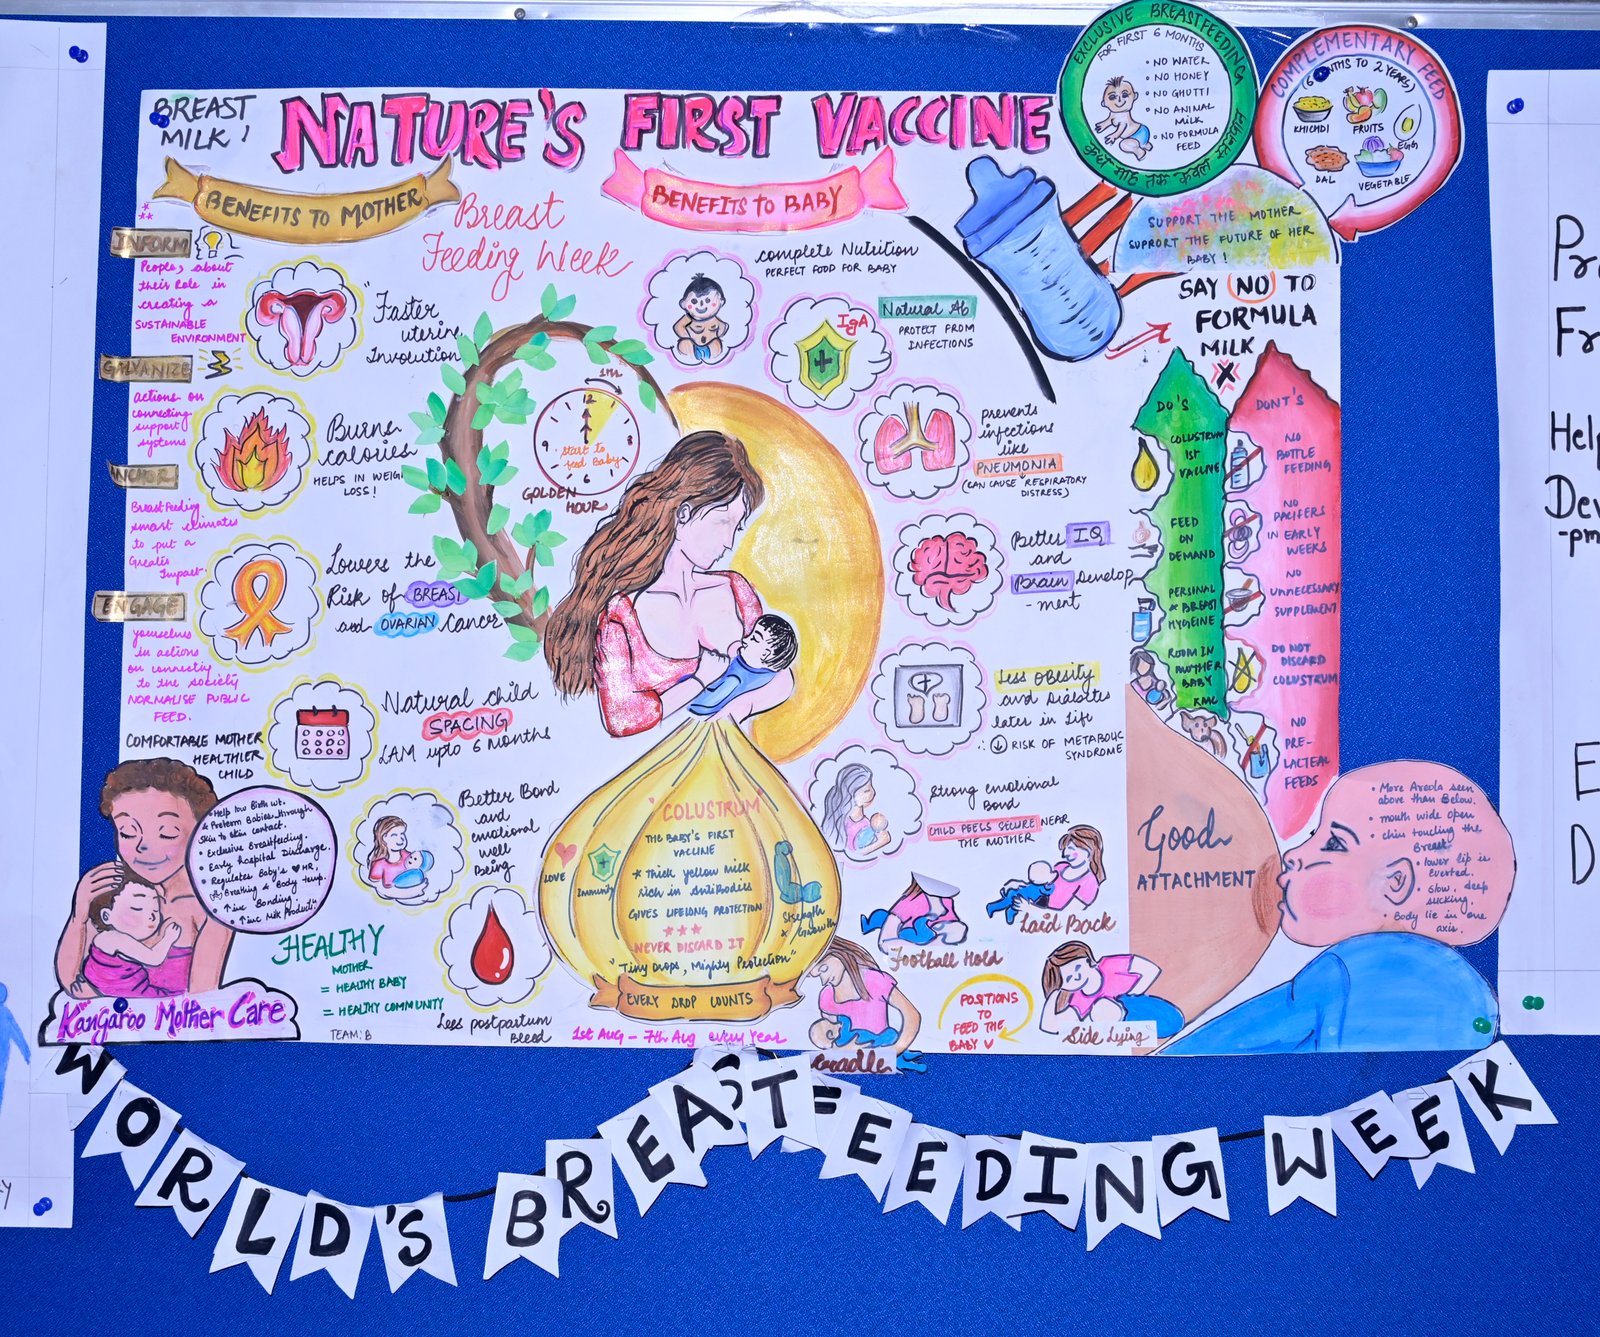 BREAST
MILK!
NATURE'S FIRST VACCINE
BENEFITS TO MOTHER
Breast
Feeding Week
BENEFITS to BABY
EXCLUSIVE BREASTFEEDING
FOR FIRST 6 MONTHS
• NO WATER
• NO HONEY
• NO GHUTTI
• NO ANIMAL
MILK
• NO FORMULA
FEED
छह माह तक केवल स्तनपान
COMPLEMENTARY FEED
TO 2 YEARS)
KHICHDI
FRUITS
EGG
DAL
VEGETABLE
SUPPORT THE MOTHER
SUPPORT THE FUTURE OF HER
BABY!
SAY NO TO
FORMULA
MILK
INFORM
People, about
their Role in
creating a
SUSTAINABLE
ENVIRONMENT
GALVANIZE
actions on
connecting
support
systems
ANCHOR
BreastFeeding
smart climates
to put a
Greater
Impact.
ENGAGE
yourselves
in actions
on connectiy
to the society
NORMALISE PUBLIC
FEED.
COMFORTABLE MOTHER
HEALTHIER
CHILD
"Faster
uterine
Involution
Burns
calories
HELPS IN WEIGH
LOSS!
Lowers the
Risk of BREAST
and OVARIAN cancer
Natural child
SPACING
LAM upto 6 months
Better Bond
and
emotional
well
Being
Less postpartum
Bleed
1hr
12
9
3
6
Start to
feed Baby
GOLDEN
HOUR
complete Nutrition
PERFECT FOOD FOR BABY
IgA
Natural Ab
PROTECT FROM
INFECTIONS
prevents
infections
like
PNEUMONIA
(CAN CAUSE RESPIRATORY
DISTRESS)
Better IQ
and
Brain Develop
-ment
Less obesity
and Diabetes
later in life
∴ ↓ RISK OF METABOLIC
SYNDROME
Strong emotional
Bond
CHILD FEELS SECURE NEAR
THE MOTHER
DO'S
COLUSTRUM
1st
VACCINE
FEED
ON
DEMAND
PERSONAL
& BREAST
HYGIENE
ROOM IN
MOTHER
BABY
KMC
DONT'S
NO
BOTTLE
FEEDING
NO
PACIFERS
IN EARLY
WEEKS
NO
UNNECESSARY
SUPPLEMENT
DO NOT
DISCARD
COLUSTRUM
NO
PRE-
LACTEAL
FEEDS
• Help low Birth wt.
& Preterm Babies through
Skin to skin contact.
• Exclusive Breastfeeding.
• Early hospital Discharge.
• Regulates Baby's HR,
Breathing & Body temp.
• ↑inc Bonding.
• ↑inc Milk Product".
Kangaroo Mother Care
HEALTHY
MOTHER
= HEALTHY BABY
= HEALTHY COMMUNITY
TEAM: B
"COLUSTRUM"
THE BABY'S FIRST
VACCINE
* Thick yellow milk
Rich in Antibodies
GIVES LIFELONG PROTECTION
***
NEVER DISCARD IT
"Tiny Drops, Mighty Protection"
LOVE
Immunity
Strength
& Growth
EVERY DROP COUNTS
1st AUG - 7th Aug every year
Football Hold
Laid Back
Cradle
POSITIONS
TO
FEED THE
BABY
Side Lying
Good
ATTACHMENT
• More Areola seen
above than Below.
• mouth wide open
• chin touching the
Breast
• lower lip is
everted.
• Slow, deep
sucking.
• Body lie in one
axis.
WORLD'S BREAST=FEEDING WEEK
Help
Dev
-pm